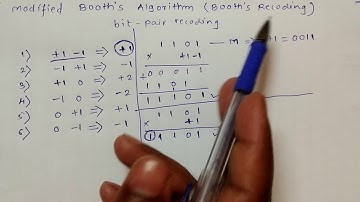 Modified Booth's Algorithm (Booth's Recoding)
bit-pair recoding
1) +1 -1 => +1
2) -1 +1 => -1
3) +1 0 => +2
4) -1 0 => -2
5) 0 +1 => +1
6) 0 -1 => -1
1 1 0 1 — M => +1 = 0011
× +1 -1
+0 0 0 1 1
1 1 0 1
1 1 1 0 1 ✓
1 1 0 1
× +1
1 1 1 0 1 ✓